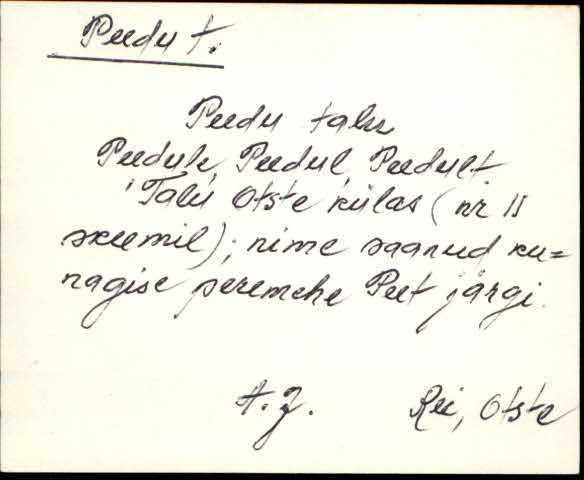 Peedu t.
Peedu talu
Peedule, Peedul, Peedult
'Talu Otste külas (nr 11
skeemil); nime saanud ku=
nagise peremehe Peet järgi.
A. J. Rei, Otste